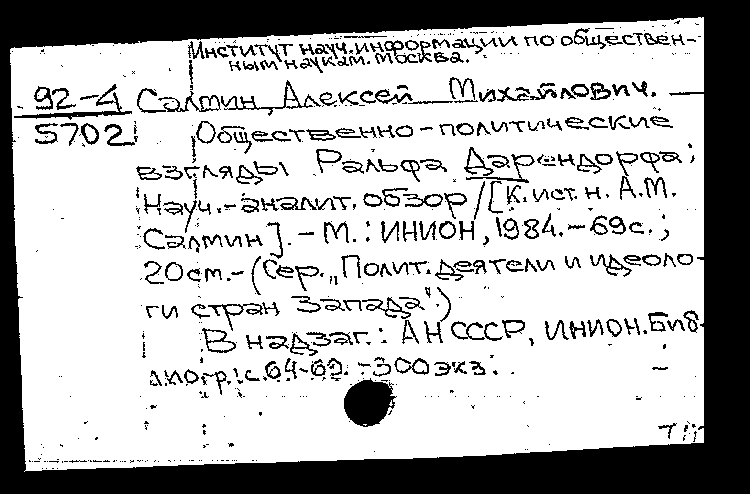 Институт науч. информации по обществен-
ным наукам. Москва.
92-4 Салмин, Алексей Михайлович.
5702 Общественно-политические
взгляды Ральфа Дарендорфа;
Науч.-аналит. обзор / [К. ист. н. А.М.
Салмин]. - М.: ИНИОН, 1984. - 69с.;
20см. - (Сер. „Полит. деятели и идеоло-
ги стран Запада".)
В надзаг.: АН СССР, ИНИОН. Биб-
лиогр.: с. 64-69. - 300 экз.